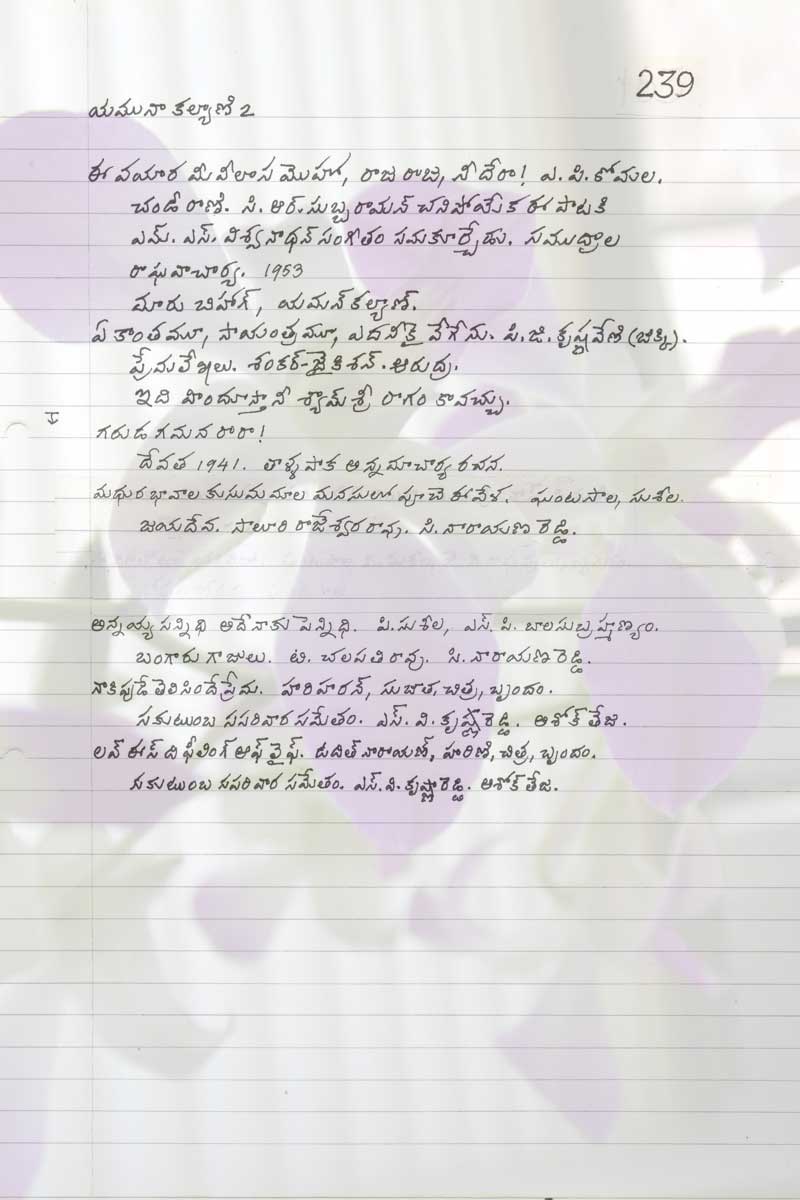 239
యమునా కల్యాణి 2
ఈ వయార మీ విలాస మొహో, రాజ రాజ, నీ దేరా! ఎ. పి. కోమల.
చండీ రాణి. సి. ఆర్. సుబ్బరామన్ చనిపోయేక ఈ పాటకి
ఎమ్. ఎస్. విశ్వనాథన్ సంగీతం సమకూర్చేడు. సముద్రాల
రాఘవాచార్య. 1953
మారు బిహాగ్, యమన్ కల్యాణ్.
ఏకాంతమూ, సాయంత్రమూ, ఎదనీకై వేగేను. పి. జి. కృష్ణవేణి (జిక్కి).
ప్రేమలేఖలు. శంకర్-జైకిశన్. ఆరుద్ర.
ఇది హిందూస్తానీ శ్యామ్ శ్రీ రాగం కావచ్చు.
గరుడ గమన రారా!
దేవత 1941. తాళ్ళపాక అన్నమాచార్య రచన.
మధుర భావాల కుసుమమాల మనసులో పూచె ఈవేళ. ఘంటసాల, సుశీల.
జయదేవ. సాలూరి రాజేశ్వరరావు. సి. నారాయణ రెడ్డి.
అన్నయ్య సన్నిధి అదే నాకు పెన్నిధి. పి. సుశీల, ఎస్. పి. బాలసుబ్రహ్మణ్యం.
బంగారు గాజులు. టి. చలపతిరావు. సి. నారాయణరెడ్డి.
నాకిప్పుడే తెలిసిందే ప్రేమ. హరిహరన్, సుజాత, చిత్ర, బృందం.
సకుటుంబ సపరివార సమేతం. ఎస్. వి. కృష్ణారెడ్డి. అశోక్ తేజ.
లవ్ ఈస్ ది ఫీలింగ్ ఆఫ్ లైఫ్. ఉదిత్ నారాయణ్, హరిణి, చిత్ర, బృందం.
సకుటుంబ సపరివార సమేతం. ఎస్. వి. కృష్ణారెడ్డి. అశోక్ తేజ.